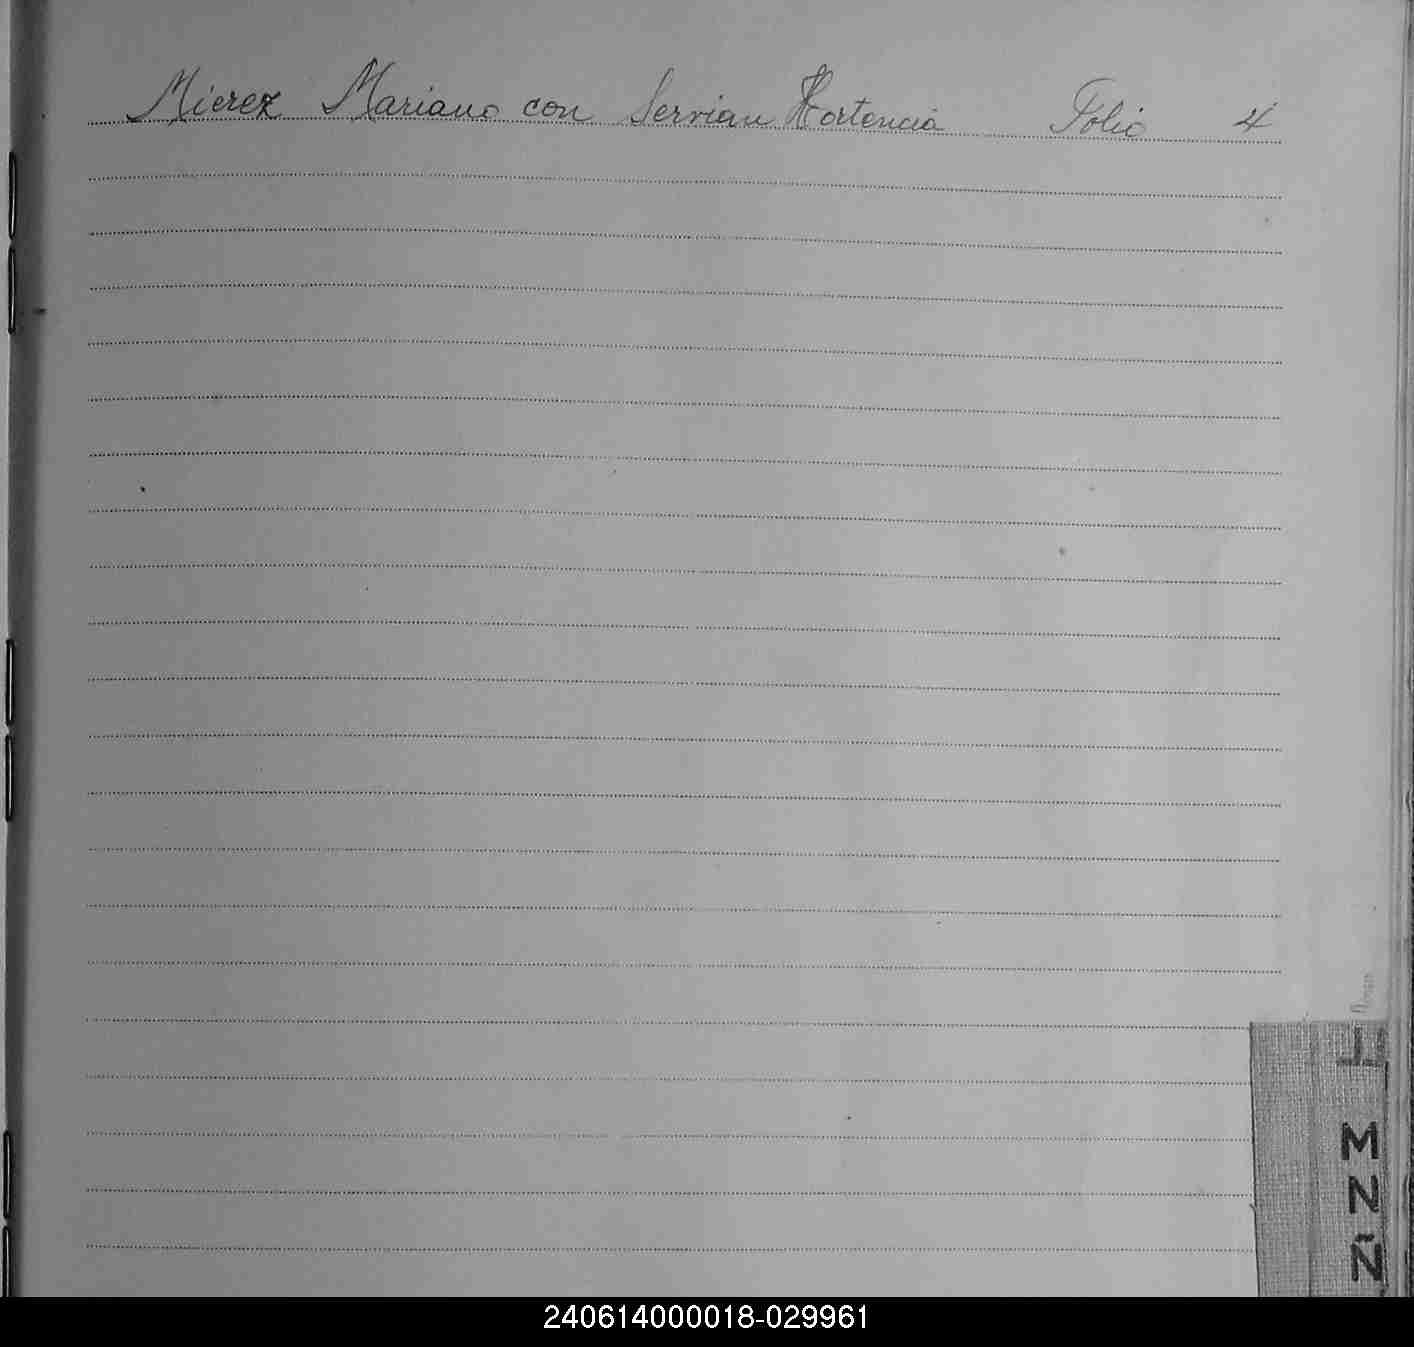 Mierez Mariano con Servian Hortencia Folio 4
L
M
N
Ñ
240614000018-029961